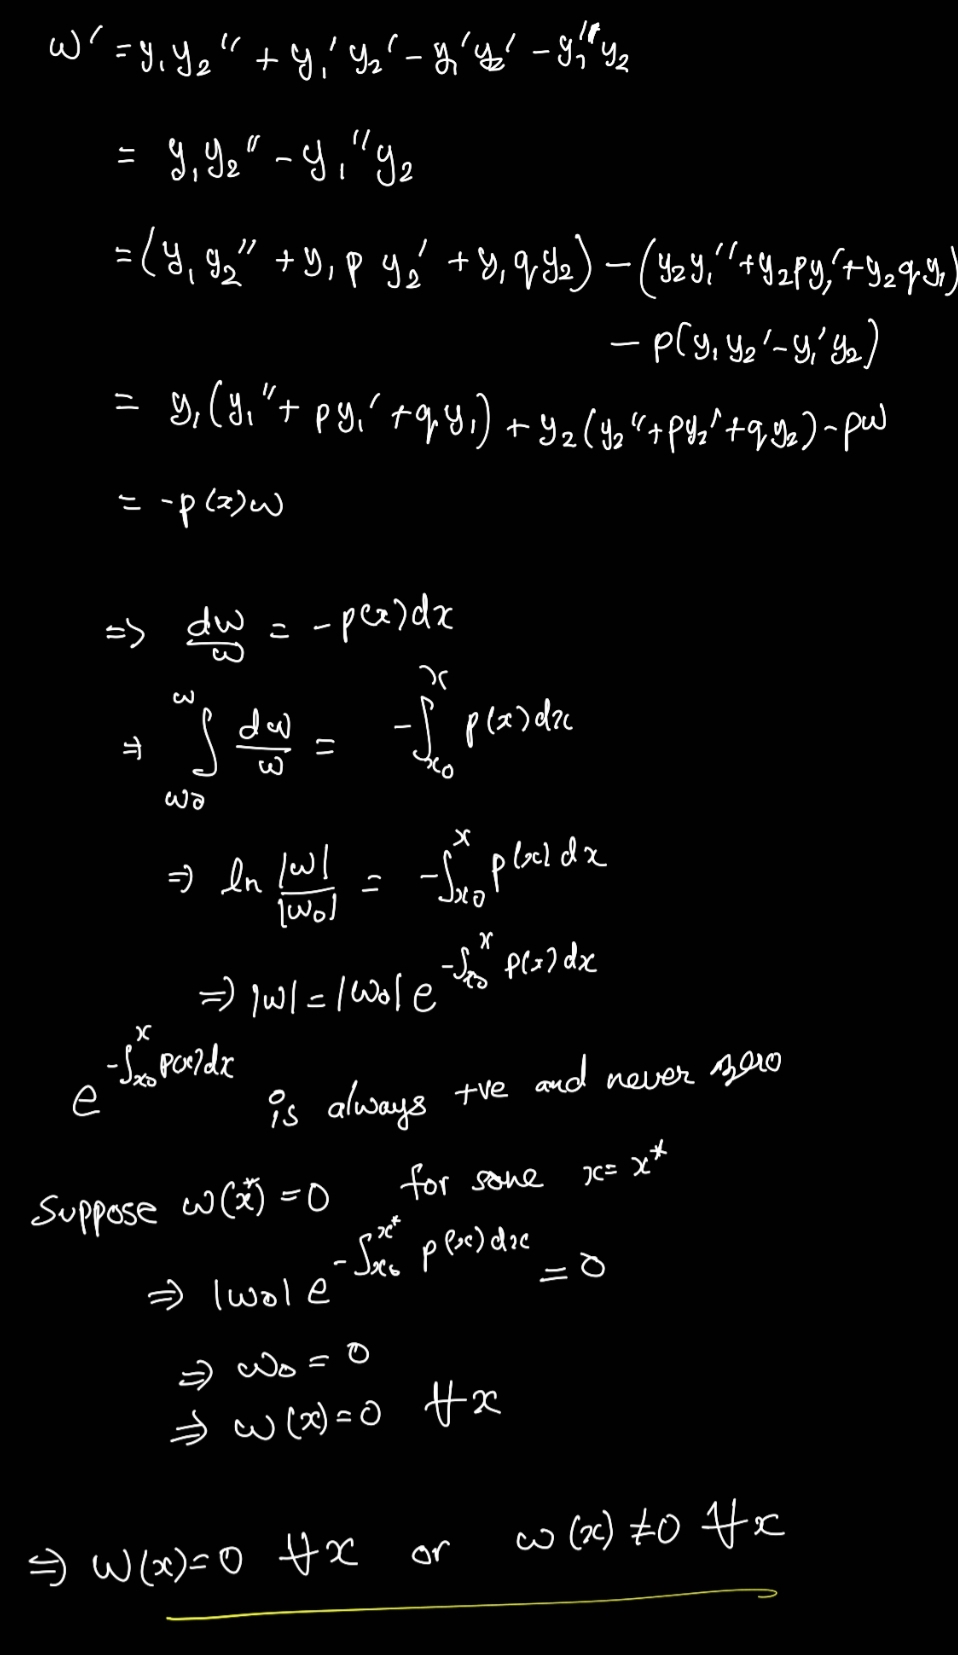 w' = y₁y₂'' + y₁'y₂' - y₁'y₂' - y₁''y₂
= y₁y₂'' - y₁''y₂
= (y₁y₂'' + y₁p y₂' + y₁qy₂) - (y₂y₁'' + y₂py₁' + y₂qy₁)
- p(y₁y₂' - y₁'y₂)
= y₁(y₁'' + py₁' + qy₁) + y₂(y₂'' + py₂' + qy₂) - pw
= -p(x)w
⇒ dw/w = -p(x)dx
⇒ ∫_{w₀}^{w} dw/w = -∫_{x₀}^{x} p(x)dx
⇒ ln |w|/|w₀| = -∫_{x₀}^{x} p(x)dx
⇒ |w| = |w₀| e^{-∫_{x₀}^{x} p(x)dx}
e^{-∫_{x₀}^{x} p(x)dx} is always +ve and never zero
Suppose w(x*) = 0 for some x = x*
⇒ |w₀| e^{-∫_{x₀}^{x*} p(x)dx} = 0
⇒ w₀ = 0
⇒ w(x) = 0 ∀x
⇒ w(x) = 0 ∀x or w(x) ≠ 0 ∀x